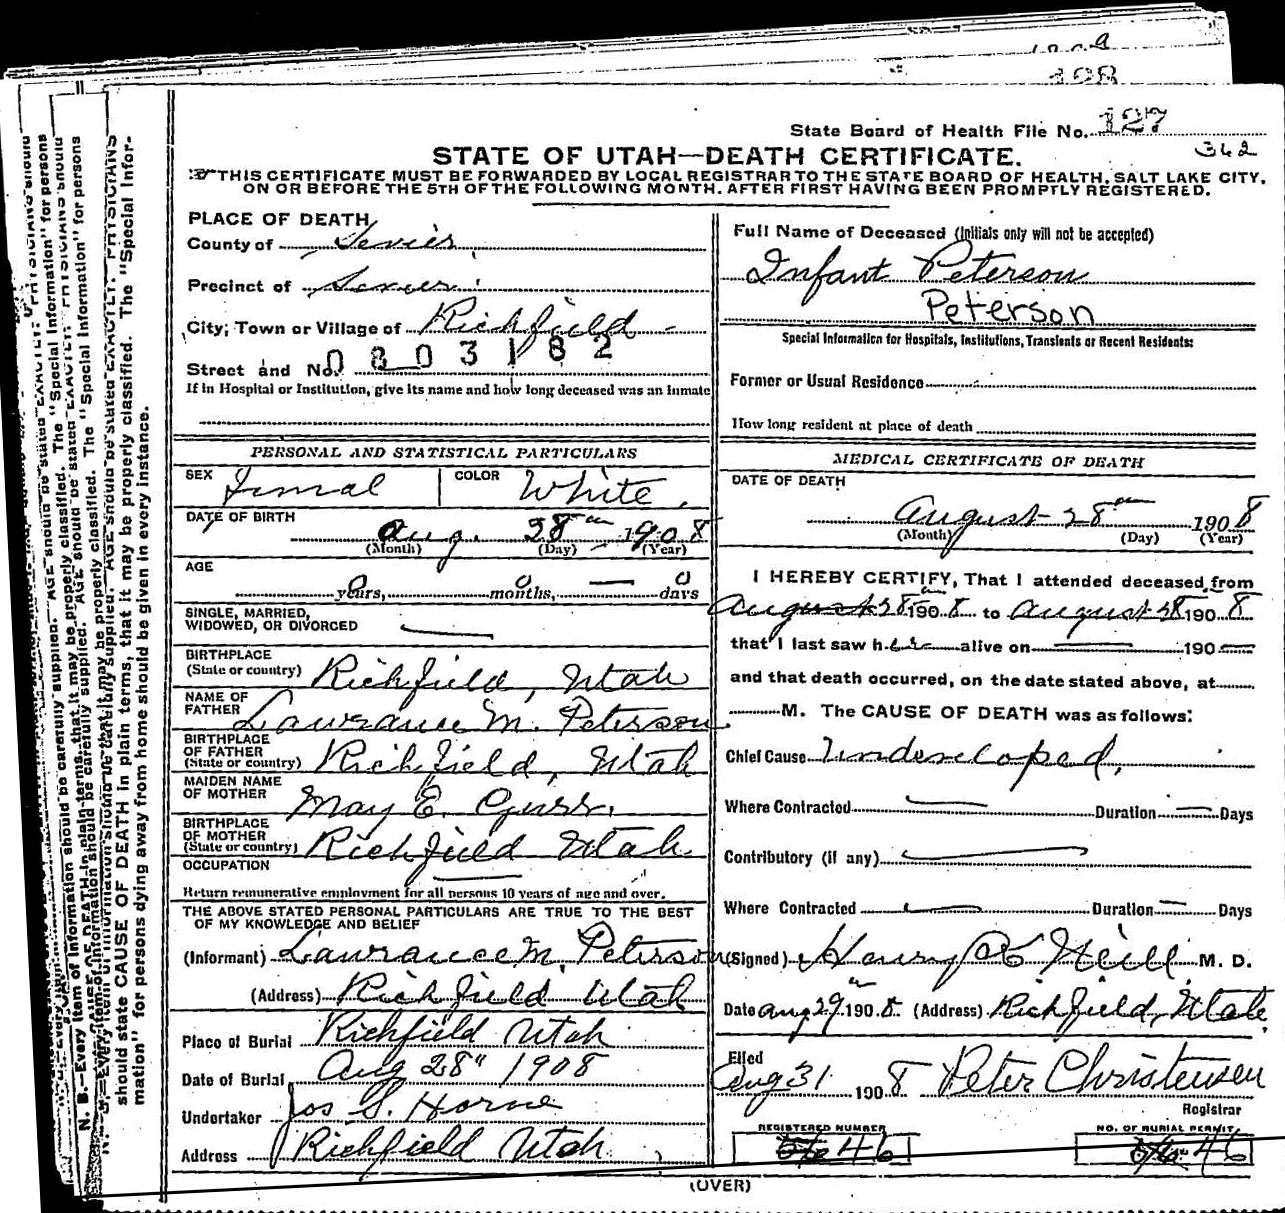 State Board of Health File No. 127
362
STATE OF UTAH—DEATH CERTIFICATE.
THIS CERTIFICATE MUST BE FORWARDED BY LOCAL REGISTRAR TO THE STATE BOARD OF HEALTH, SALT LAKE CITY,
ON OR BEFORE THE 5TH OF THE FOLLOWING MONTH. AFTER FIRST HAVING BEEN PROMPTLY REGISTERED.
PLACE OF DEATH
County of Sevier
Precinct of Sevier
City; Town or Village of Richfield
Street and No. 0803182
If in Hospital or Institution, give its name and how long deceased was an Inmate
Full Name of Deceased (Initials only will not be accepted)
Infant Peterson
Peterson
Special Information for Hospitals, Institutions, Transients or Recent Residents:
Former or Usual Residence
How long resident at place of death
PERSONAL AND STATISTICAL PARTICULARS
SEX Femal COLOR White
DATE OF BIRTH Aug. 28 1908
(Month) (Day) (Year)
AGE
0 years, 0 months, 0 days
SINGLE, MARRIED,
WIDOWED, OR DIVORCED
BIRTHPLACE
(State or country) Richfield, Utah
NAME OF
FATHER Lawrance M. Peterson
BIRTHPLACE
OF FATHER
(State or country) Richfield, Utah
MAIDEN NAME
OF MOTHER May E.
BIRTHPLACE
OF MOTHER
(State or country) Richfield Utah
OCCUPATION
Return remunerative employment for all persons 10 years of age and over.
THE ABOVE STATED PERSONAL PARTICULARS ARE TRUE TO THE BEST
OF MY KNOWLEDGE AND BELIEF
(Informant) Lawrance M. Peterson
(Address) Richfield Utah
Place of Burial Richfield Utah
Date of Burial Aug 28" 1908
Undertaker Jos S. Horne
Address Richfield Utah
MEDICAL CERTIFICATE OF DEATH
DATE OF DEATH
August 28 1908
(Month) (Day) (Year)
I HEREBY CERTIFY, That I attended deceased from
August 28 1908 to August 28 1908
that I last saw her alive on 190
and that death occurred, on the date stated above, at
M. The CAUSE OF DEATH was as follows:
Chief Cause Undeveloped.
Where Contracted Duration Days
Contributory (if any)
Where Contracted Duration Days
(Signed) Henry K Neill M. D.
Date Aug 29 1908. (Address) Richfield, Utah
Filed
Aug 31 1908 Peter Christensen
Registrar
REGISTERED NUMBER
46
NO. OF BURIAL PERMIT
46
(OVER)
N. B.—Every item of information should be carefully supplied. AGE should be stated EXACTLY. PHYSICIANS
should state CAUSE OF DEATH in plain terms, that it may be properly classified. The "Special Infor-
mation" for persons dying away from home should be given in every instance.